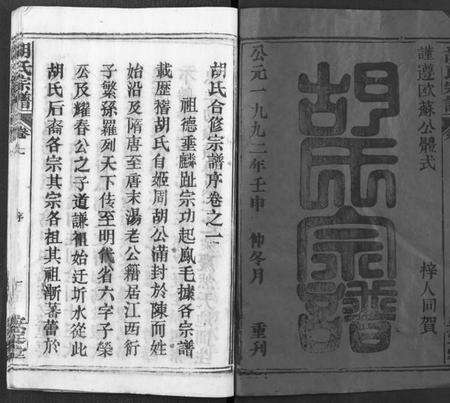 謹遵歐蘇公體式
梓人同賀
胡氏宗譜
公元一九九二年壬申 仲冬月 重刊
胡氏合修宗譜序卷之一
祖德垂麟趾宗功起鳳毛據各宗譜
載歷稽胡氏自姬周胡公滿封於陳而姓
始沿及隋唐至唐末湯老公籍居江西衍
子繁孫羅列天下传至明代省六字子榮
公及耀春公之子道謙祖始迁圻水從此
胡氏后裔各宗其宗各祖其祖漸善蕾於
胡氏宗譜
卷一
序